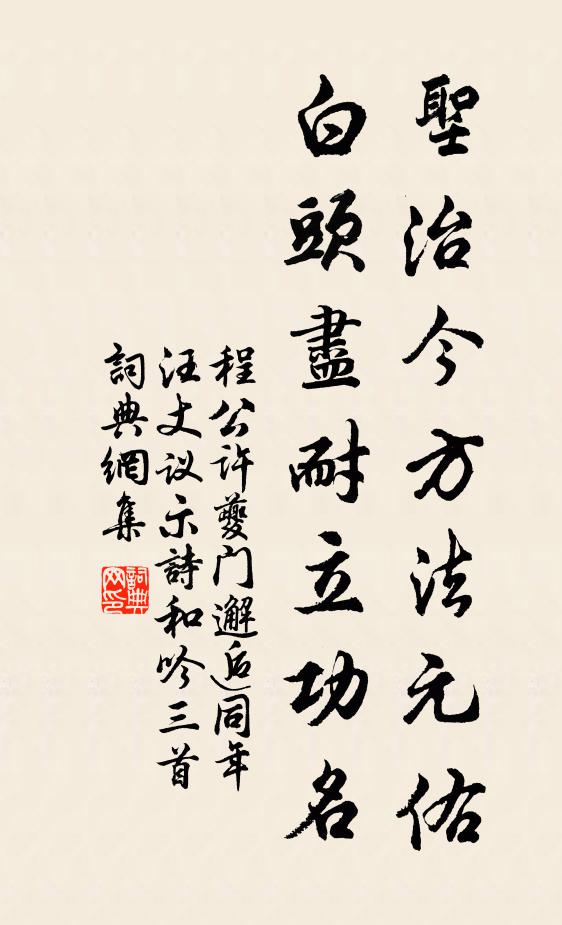 聖治今方法元佑
白頭盡耐立功名
程公許夔门邂逅同年
汪丈议示詩和吟三首
詞典網集
詞典
网印